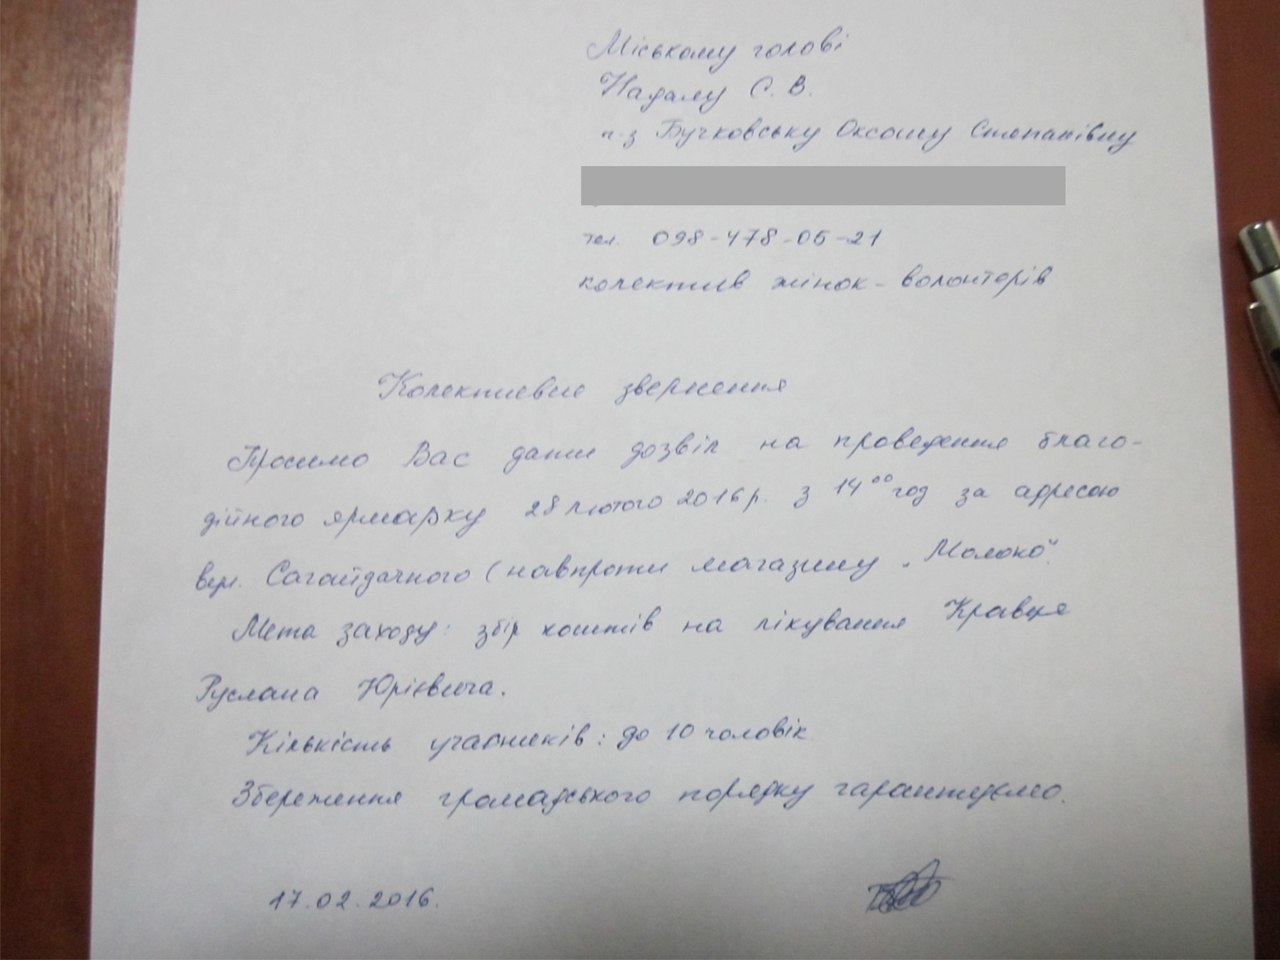 Міському голові
Надалу С. В.
п-з Бучковську Оксану Степанівну
тел. 098-478-05-21
колектив жінок-волонтерів
Колективне звернення
Просимо Вас дати дозвіл на проведення благо-
дійного ярмарку 28 лютого 2016 р. з 14⁰⁰ год за адресою
вул. Сагайдачного (навпроти магазину „Молоко"
Мета заходу: збір коштів на лікування Кравця
Руслана Юрієвича.
Кількість учасників: до 10 чоловік
Збереження громадського порядку гарантуємо.
17.02.2016.